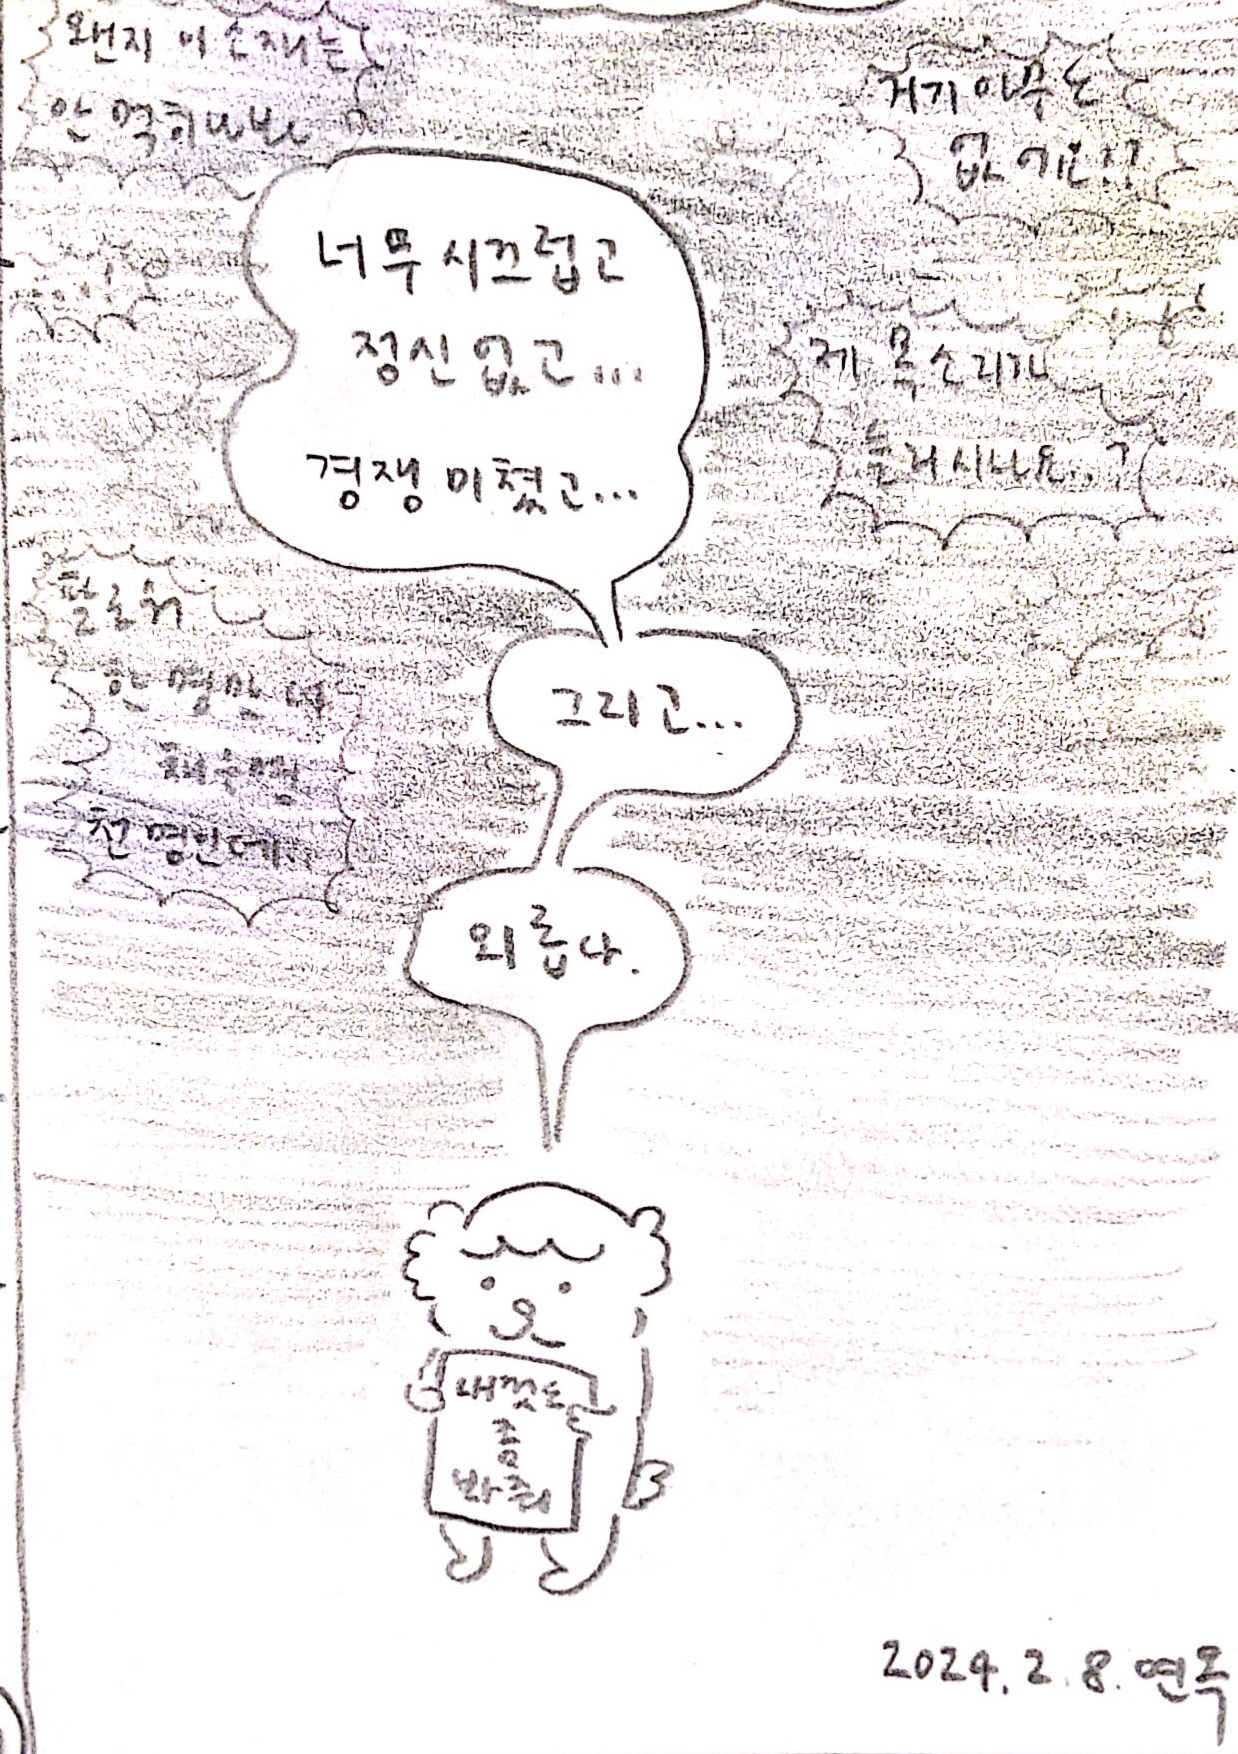 왠지 이 소재는
안 먹히나봐
거기 아무도
없 거니!?
너무 시끄럽고
정신 없고...
경쟁 미쳤고...
제 목소리가
들리시나요..?
팔로워
한 명만 더
채우면
천 명인데..
그리고...
외롭다.
내껏도
좀
봐줘
2024. 2. 8. 연목